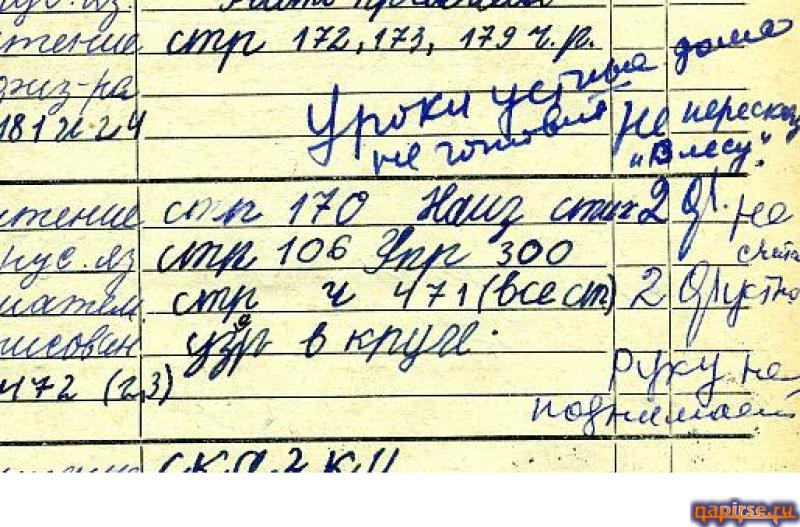 стр 172, 173, 179 ч.р.
физ-ра
Уроки устные дома
не готовил
Не пересказ
"В лесу".
181 и 24
чтение стр 170 Наиз стих 2
не
рус. яз стр 106 Упр 300
матем. стр ч 471 (все ст) 2
устно
рисован узор в круге.
472 (2,3)
Руку не
поднимает
qapirse.ru